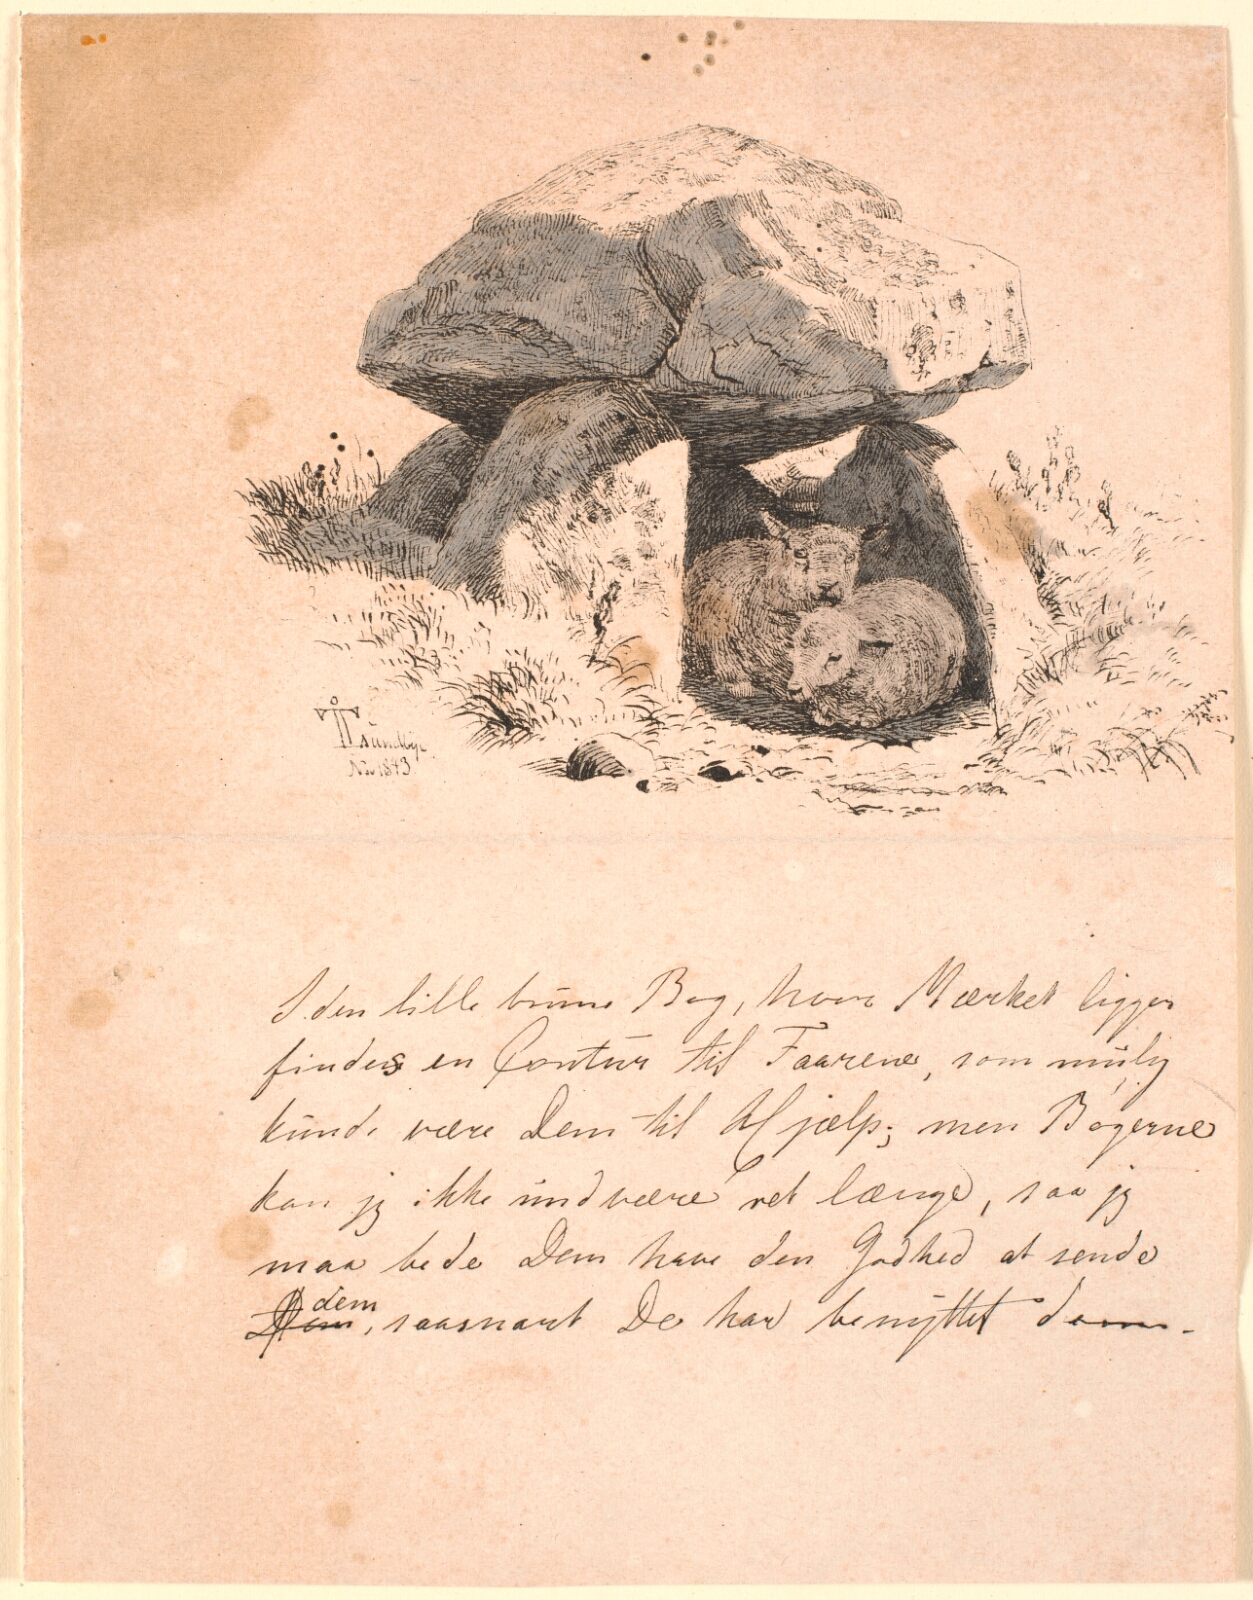 Lundbye
Nov 1843
I den lille brune Bog, hvor Mærket ligger
findes en Contur til Faarene, som mulig
kunde være Dem til Hjælp; men Bøgerne
kan jeg ikke undvære ret længe, saa jeg
maa bede Dem have den Godhed at sende
dem, saasnart De har benyttet dem.